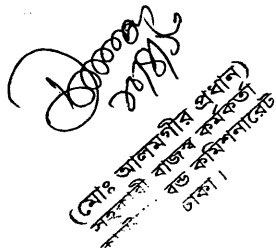 (মোঃ আলমগীর প্রধান)
সহকারী রাজস্ব কর্মকর্তা
বন্ড কমিশনারেট
ঢাকা।